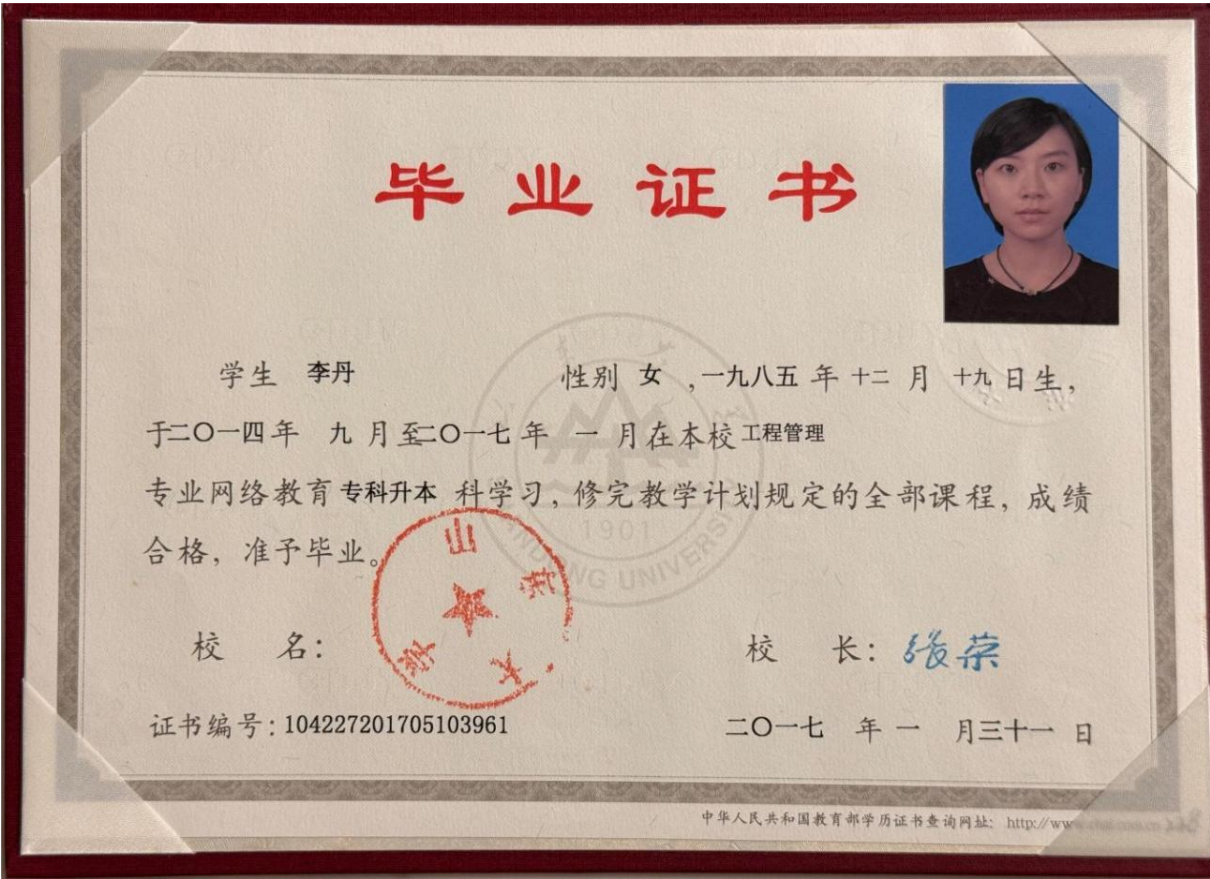 毕业证书
学生 李丹 性别 女 ,一九八五 年 十二 月 十九日生,
于二〇一四年 九 月至二〇一七年 一 月在本校工程管理
专业网络教育专科升本 科学习,修完教学计划规定的全部课程,成绩
合格,准予毕业。
1901
SHANDONG UNIVERSITY
山东大学
校 名: 校 长: 张荣
证书编号:104227201705103961 二〇一七 年 一 月三十一 日
中华人民共和国教育部学历证书查询网址: http://www